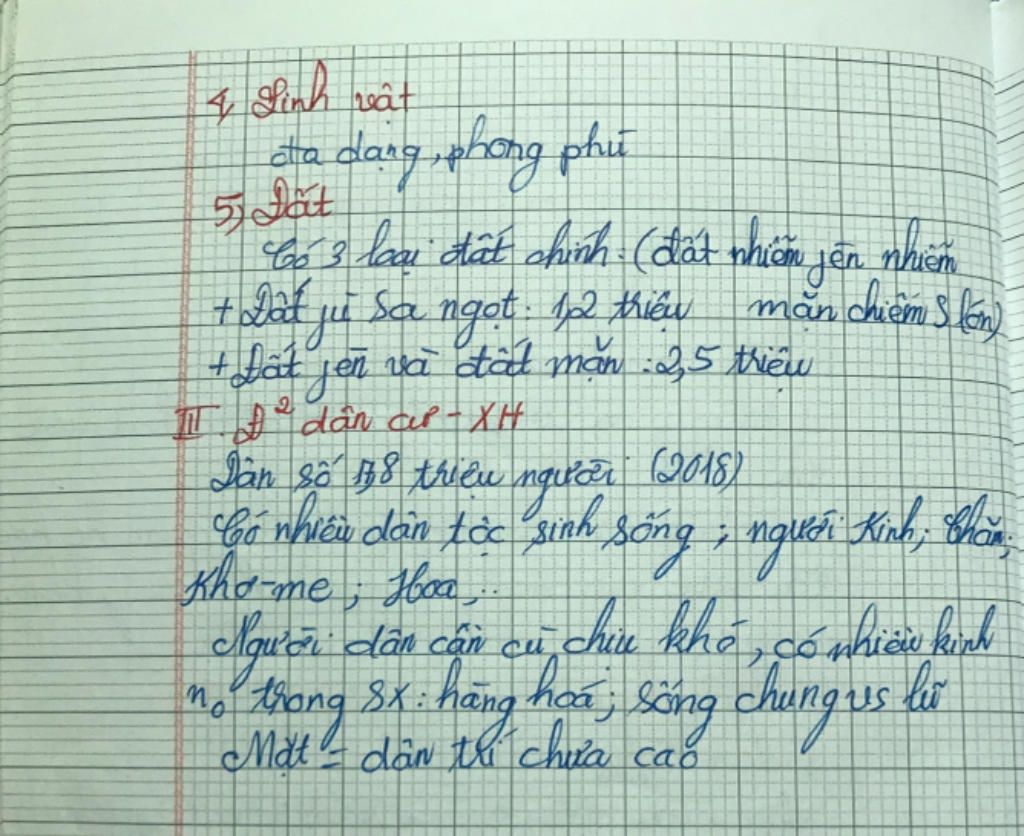 4, Sinh vật
đa dạng, phong phú
5, Đất
Có 3 loại đất chính: (đất nhiễm jèn nhiễm
+ Đất jù sa ngọt: 1,2 triệu mặn chiếm S lớn)
+ Đất jèn và đất mặn: 2,5 triệu
III. Đ² dân cư - XH
Dân số 17,8 triệu người (2018)
Có nhiều dân tộc sinh sống; người Kinh; Chăm;
Khơ-me; Hoa,..
Người dân cần cù chịu khó, có nhiều kinh
n₀ trong SX: hàng hoá; sống chung vs lũ
Mặt = dân trí chưa cao